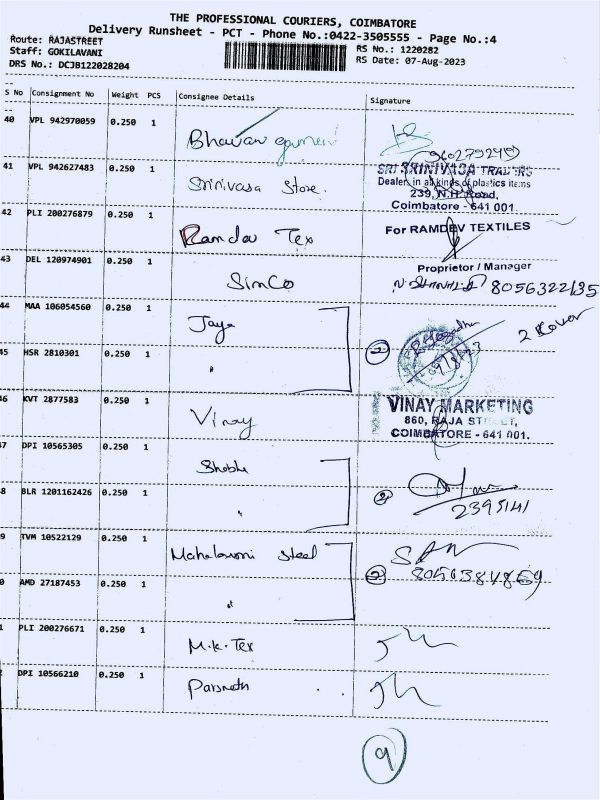 THE PROFESSIONAL COURIERS, COIMBATORE
Delivery Runsheet - PCT - Phone No.:0422-3505555 - Page No.:4
Route: RAJASTREET
Staff: GOKILAVANI
DRS No.: DCJB122028204
RS No.: 1220282
RS Date: 07-Aug-2023
S No Consignment No Weight PCS Consignee Details Signature
40 VPL 942970059 0.250 1 Bhavan
41 VPL 942627483 0.250 1 Srinivasa Store.
SRI SRINIVASA TRADERS
Dealer in all kinds of plastics items
239, N.H. Road,
Coimbatore - 641 001.
42 PLI 200276879 0.250 1 Ramdev Tex
For RAMDEV TEXTILES
Proprietor / Manager
43 DEL 120974901 0.250 1 SimCo
8056322135
44 MAA 106054560 0.250 1 Jaya
2 Cover
45 HSR 2810301 0.250 1 "
2
9/8/23
46 KVT 2877583 0.250 1 Vinay
VINAY MARKETING
860, RAJA STREET,
COIMBATORE - 641 001.
7 DPI 10565305 0.250 1 Shobha
8 BLR 1201162426 0.250 1 "
2
2395141
9 TVM 10522129 0.250 1 Mahalaxmi Steel
0 AMD 27187453 0.250 1 "
2
8056384869
1 PLI 200276671 0.250 1 M.K. Tex
DPI 10566210 0.250 1 Parsnath
9